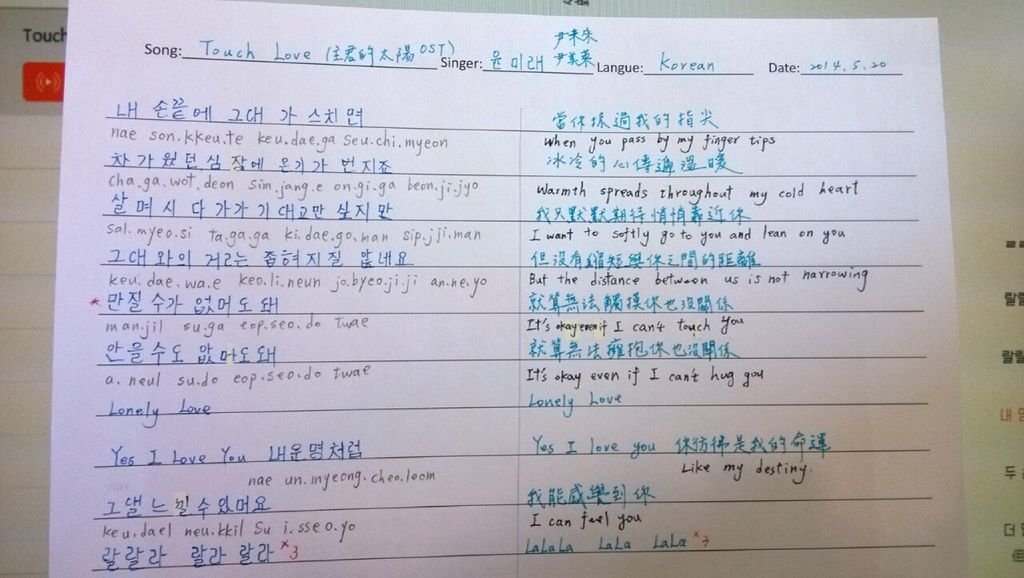 Touch
Song: Touch Love (主君的太陽 OST) Singer: 윤미래 尹未來 尹美萊 Langue: Korean Date: 2014.5.20
내 손끝에 그대 가 스치면 當你抹過我的指尖
nae son.kkeu.te keu.dae.ga seu.chi.myeon when you pass by my finger tips
차가웠던 심장에 온기가 번지죠 冰冷的心傳遍溫暖
cha.ga.wot.deon sim.jang.e on.gi.ga beon.ji.jyo Warmth spreads throughout my cold heart
살며시 다가가 기대고만 싶지만 我只默默期待悄悄靠近你
sal.myeo.si ta.ga.ga ki.dae.go.man sip.jji.man I want to softly go to you and lean on you
그대 와의 거리는 좁혀지질 않네요 但沒有縮短與你之間的距離
keu.dae.wa.e keo.li.neun jo.byeo.ji.ji an.ne.yo But the distance between us is not narrowing
*만질 수가 없어도 돼 就算無法觸摸你也沒關係
man.jil su.ga eop.seo.do twae It's okay even if I can't touch you
안을 수도 없어도 돼 就算無法擁抱你也沒關係
a.neul su.do eop.seo.do twae It's okay even if I can't hug you
Lonely Love Lonely Love
Yes I Love You 내운명처럼 Yes I love you 你彷彿是我的命運
nae un.myeong.cheo.leom Like my destiny.
그댈 느낄 수 있어요 我能感覺到你
keu.dael neu.kkil su i.sseo.yo I can feel you
랄랄라 랄라 랄라 ×3 LaLaLa LaLa LaLa ×3